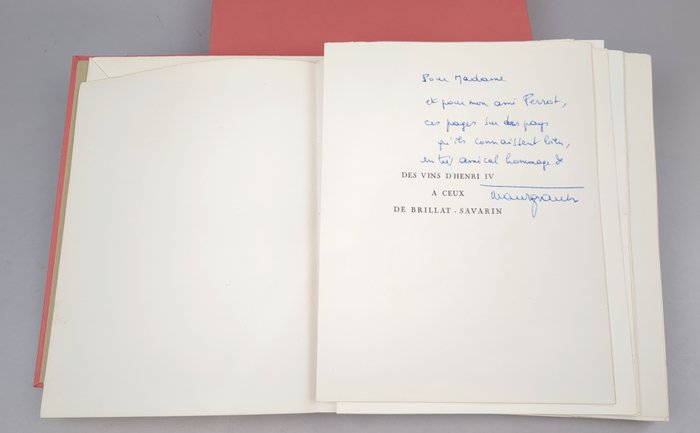 Pour Madame
et pour mon ami Perrot,
ces pages sur des pays
qu'ils connaissent bien,
en très amical hommage de
DES VINS D'HENRI IV
A CEUX
DE BRILLAT-SAVARIN